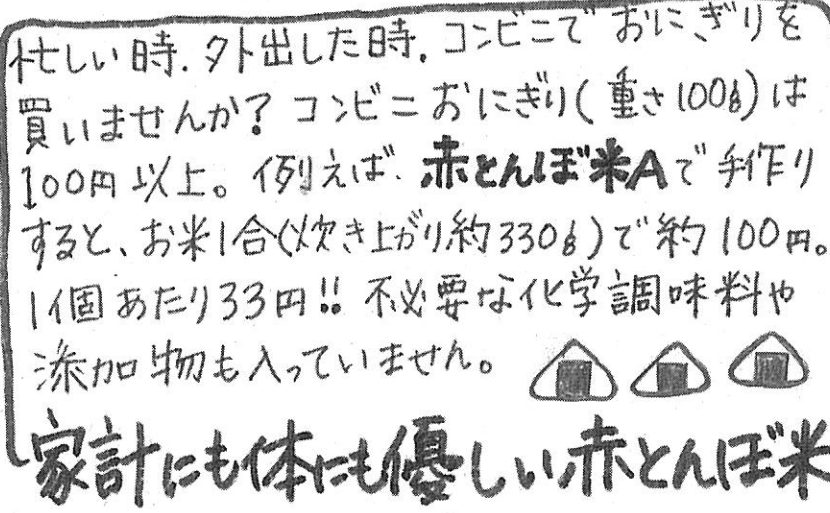 忙しい時．外出した時．コンビニで おにぎりを
買いませんか？コンビニおにぎり(重さ100g)は
100円以上。例えば．赤とんぼ米Aで手作り
すると、お米1合(炊き上がり約330g)で約100円。
1個あたり33円!! 不必要な化学調味料や
添加物も入っていません。
家計にも体にも優しい赤とんぼ米